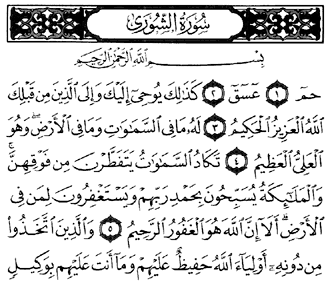 سُورَةُ الشُّورَىٰ
بِسْمِ اللَّهِ الرَّحْمَٰنِ الرَّحِيمِ
حمٓ ۝١ عٓسٓقٓ ۝٢ كَذَٰلِكَ يُوحِىٓ إِلَيْكَ وَإِلَى الَّذِينَ مِن قَبْلِكَ
اللَّهُ الْعَزِيزُ الْحَكِيمُ ۝٣ لَهُۥ مَا فِى السَّمَٰوَٰتِ وَمَا فِى الْأَرْضِ ۖ وَهُوَ
الْعَلِىُّ الْعَظِيمُ ۝٤ تَكَادُ السَّمَٰوَٰتُ يَتَفَطَّرْنَ مِن فَوْقِهِنَّ ۚ
وَالْمَلَٰٓئِكَةُ يُسَبِّحُونَ بِحَمْدِ رَبِّهِمْ وَيَسْتَغْفِرُونَ لِمَن فِى
الْأَرْضِ ۗ أَلَآ إِنَّ اللَّهَ هُوَ الْغَفُورُ الرَّحِيمُ ۝٥ وَالَّذِينَ اتَّخَذُوا۟
مِن دُونِهِۦٓ أَوْلِيَآءَ اللَّهُ حَفِيظٌ عَلَيْهِمْ وَمَآ أَنتَ عَلَيْهِم بِوَكِيلٍ